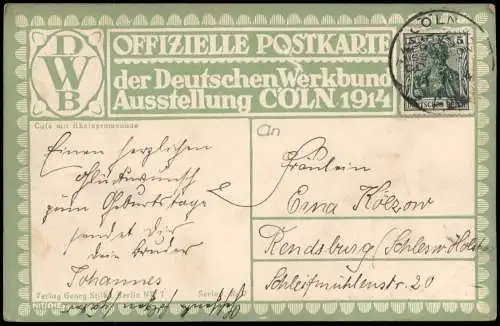 DWB
OFFIZIELLE POSTKARTE
der Deutschen Werkbund
Ausstellung CÖLN 1914
CÖLN
5
DEUTSCHES REICH
Café mit Rheinpromenade
Einen herzlichen
Glückwunsch
zum Geburtstage
sendet dir
dein Bruder
Johannes
An
Fräulein
Erna Kölzow
Rendsburg (Schlesw Holst
Schleifmühlenstr. 20
Verlag Georg Stilke Berlin NW 7